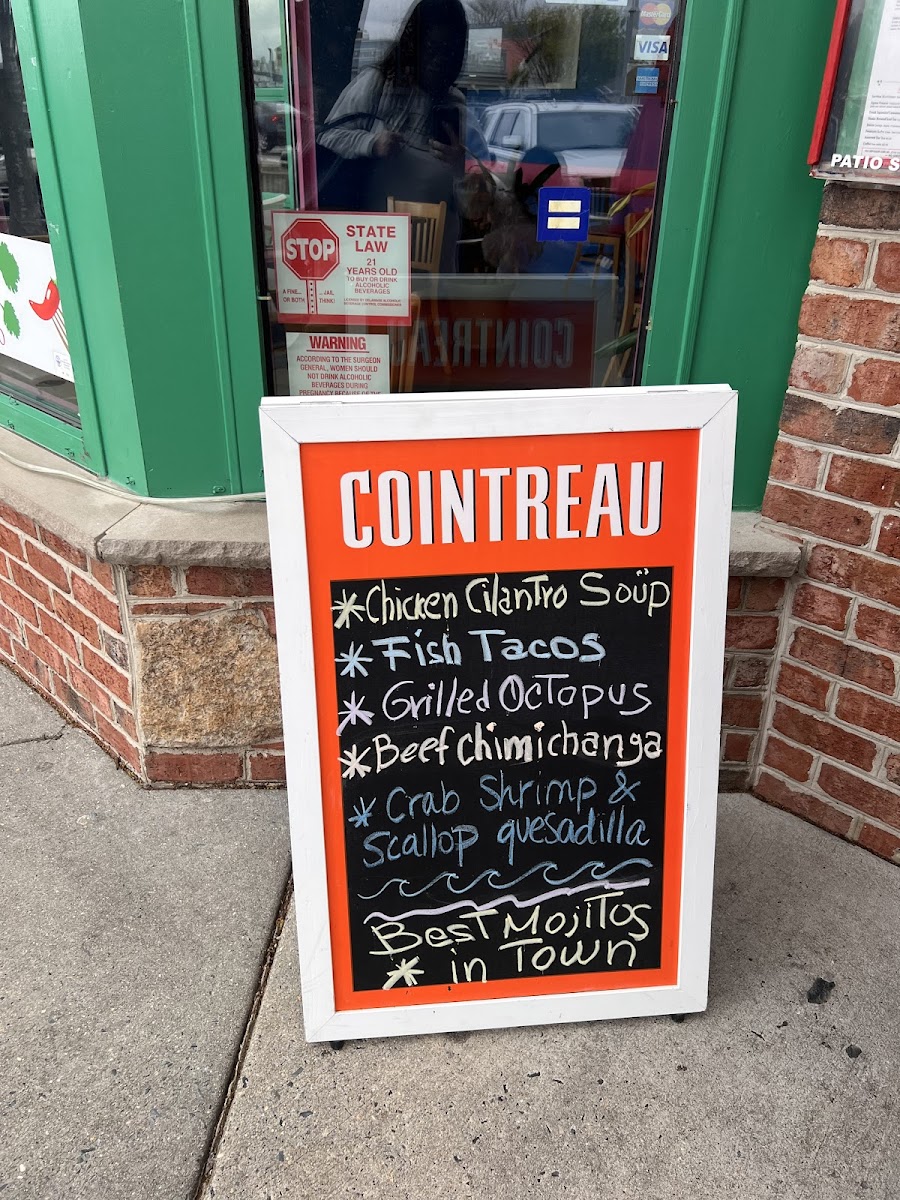 MasterCard
VISA
PATIO S
STOP
STATE
LAW
21
YEARS OLD
TO BUY OR DRINK
ALCOHOLIC
BEVERAGES
A FINE... ...JAIL
OR BOTH THINK!
WARNING
ACCORDING TO THE SURGEON
GENERAL, WOMEN SHOULD
NOT DRINK ALCOHOLIC
BEVERAGES DURING
PREGNANCY BECAUSE OF THE
COINTREAU
COINTREAU
*Chicken CilanTro Soup
*Fish Tacos
*Grilled OcTopus
*Beef chimichanga
*Crab Shrimp &
Scallop quesadilla
BesT MojiTos
* in Town